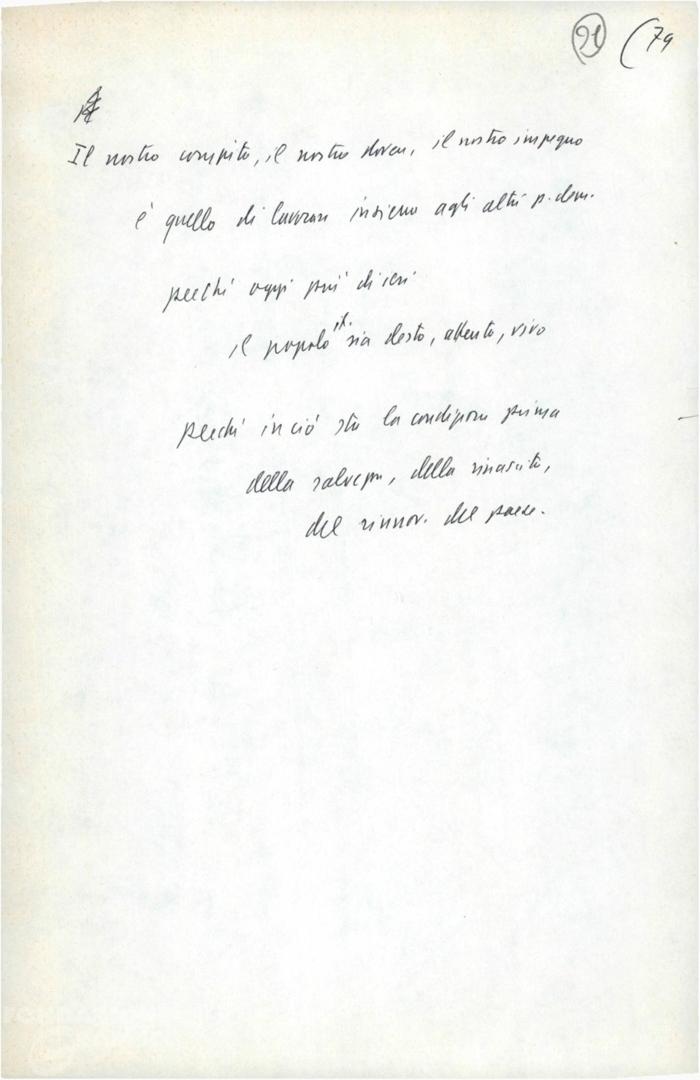 21 (79
Il nostro compito, il nostro dovere, il nostro impegno
è quello di lavorare insieme agli altri p. dem.
perché oggi più di ieri
il popolo it. sia desto, attento, vivo
perché in ciò sta la condizione prima
della salvezza, della rinascita,
del rinnov. del paese.